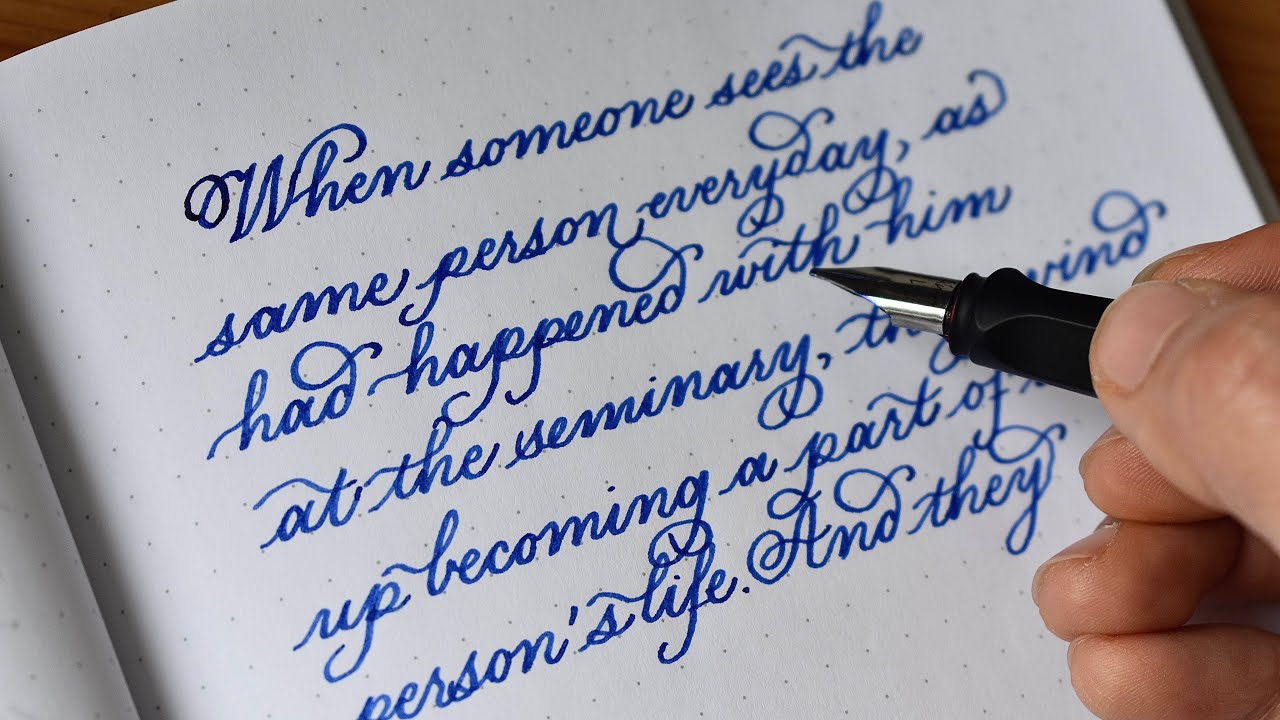 When someone sees the
same person everyday, as
had happened with him
at the seminary, wind
up becoming a part of
person's life. And they